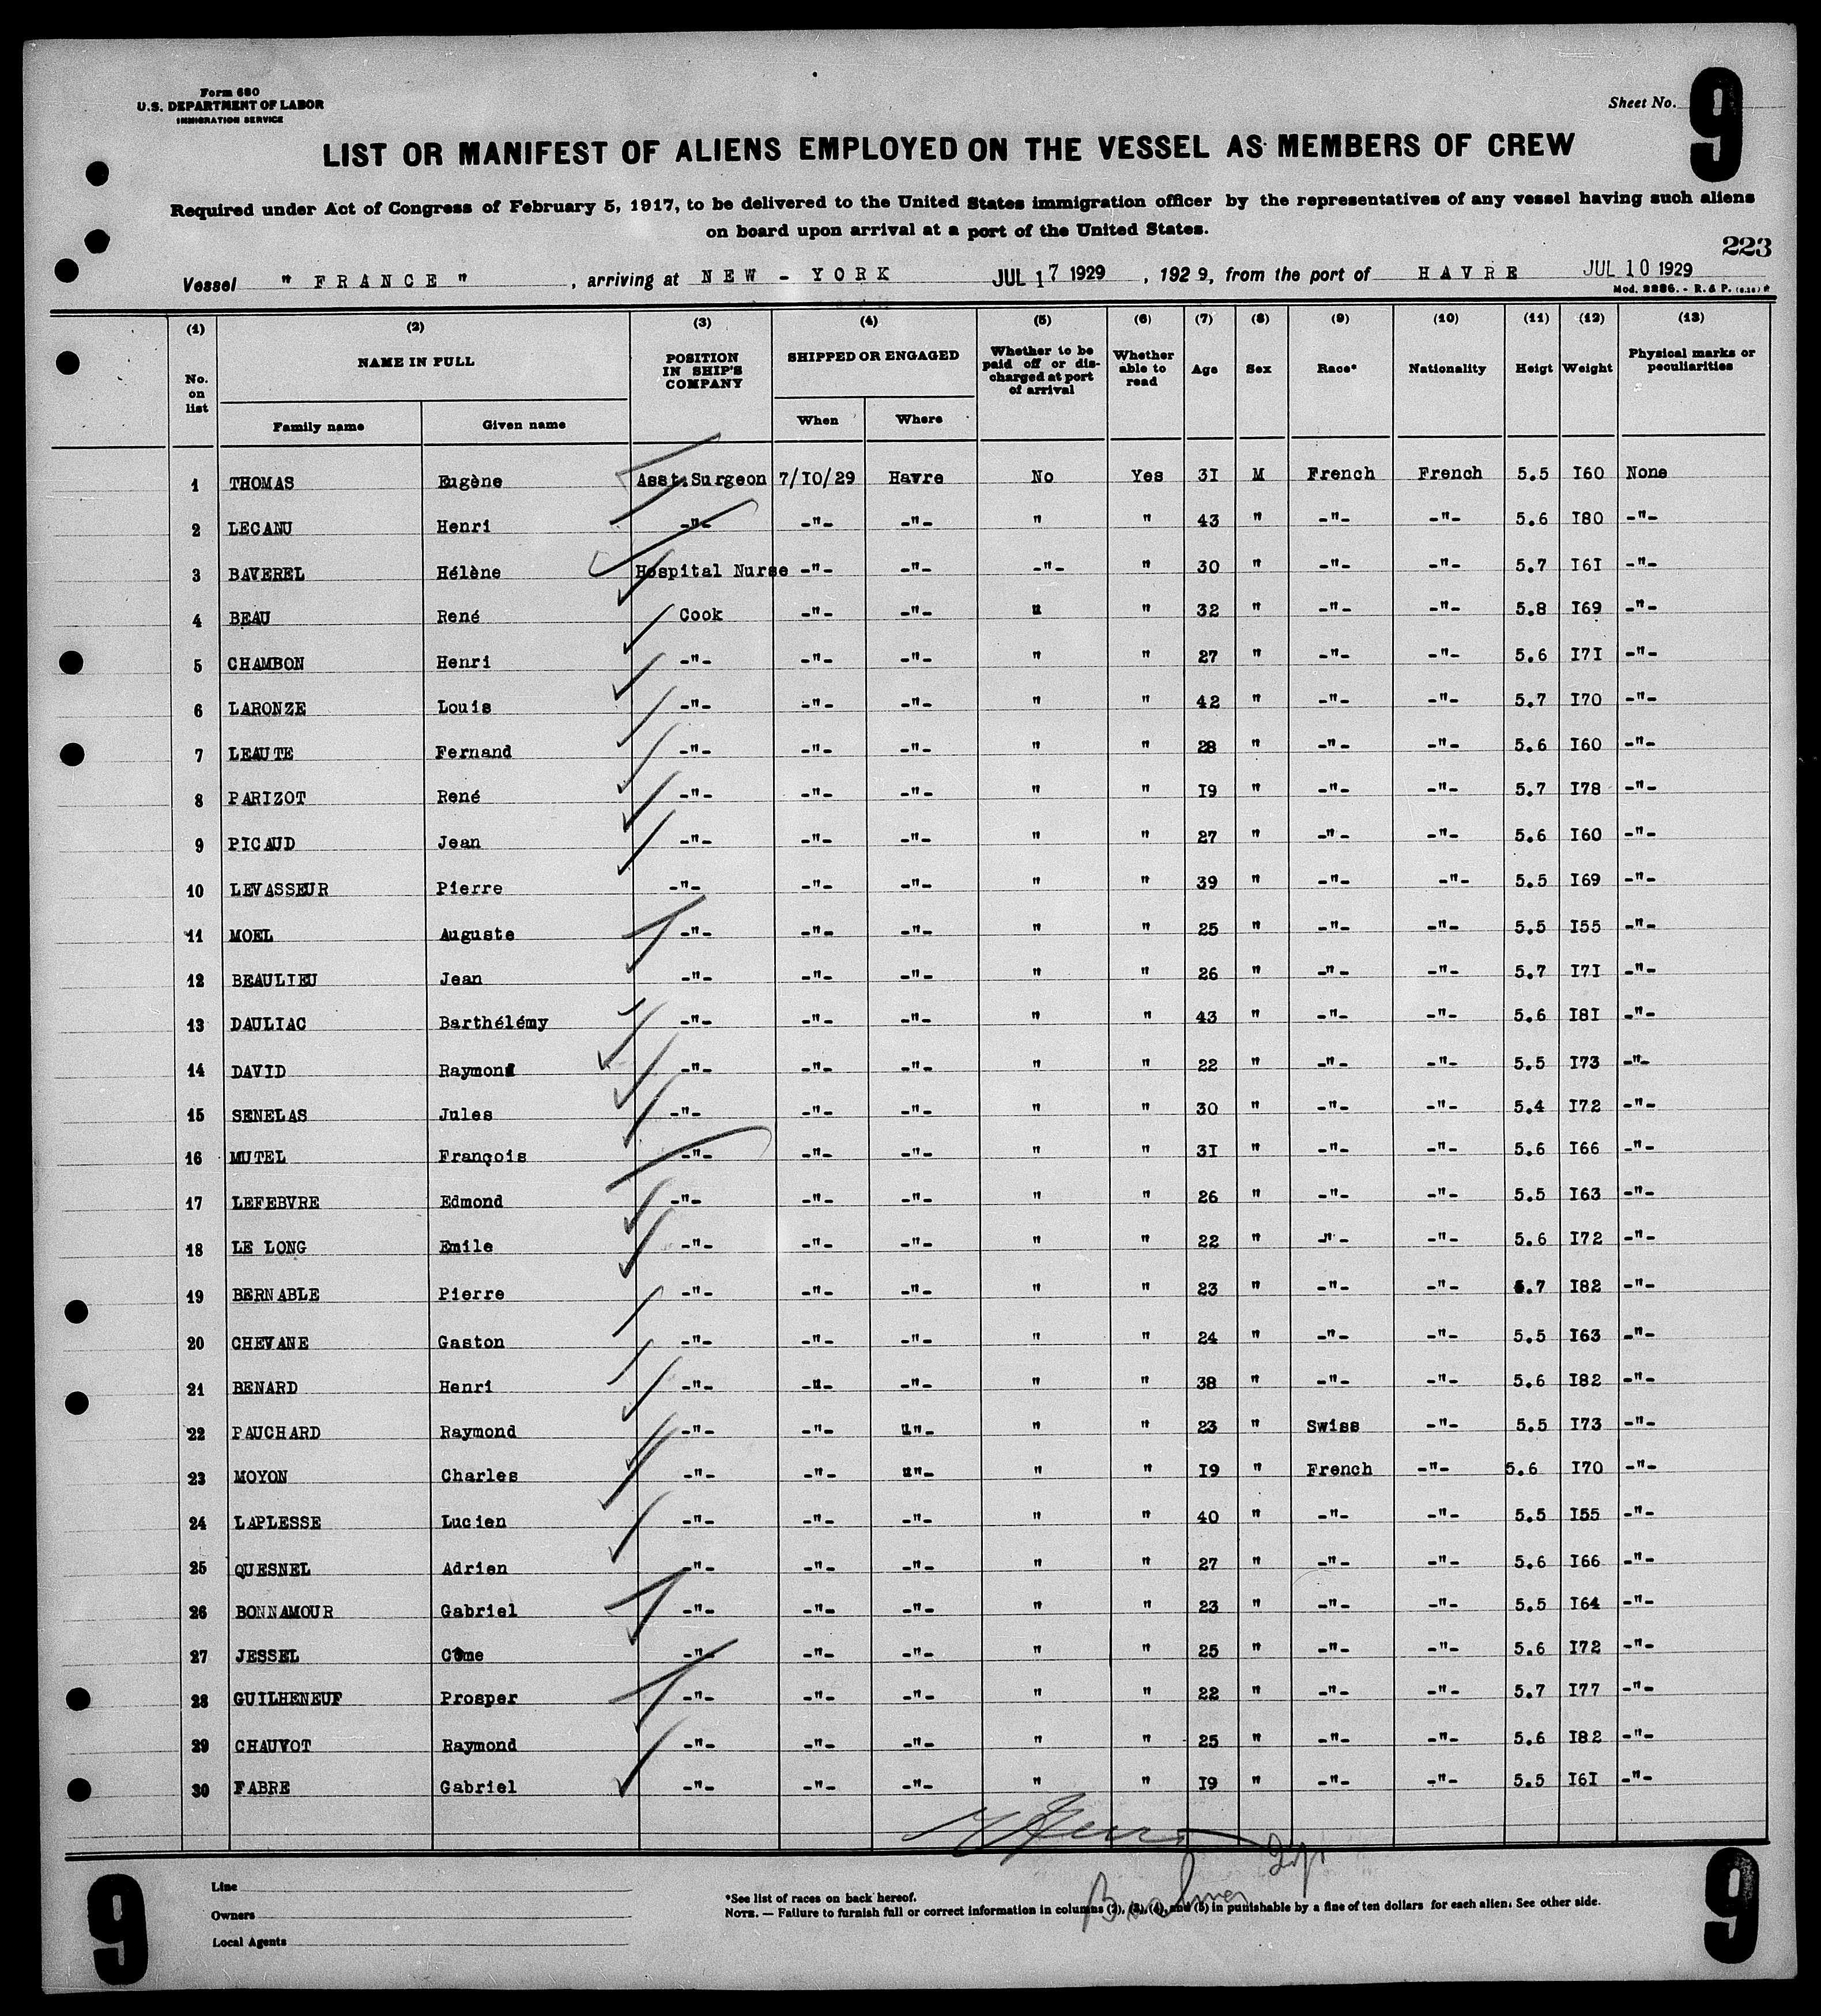 Form 680
U.S. DEPARTMENT OF LABOR
IMMIGRATION SERVICE
Sheet No. 9
LIST OR MANIFEST OF ALIENS EMPLOYED ON THE VESSEL AS MEMBERS OF CREW
Required under Act of Congress of February 5, 1917, to be delivered to the United States immigration officer by the representatives of any vessel having such aliens
on board upon arrival at a port of the United States.
223
Vessel " FRANCE " , arriving at NEW - YORK JUL 17 1929 , 192 9, from the port of HAVRE JUL 10 1929
Mod. 2286. - R. & P.
(1) (2) (3) (4) (5) (6) (7) (8) (9) (10) (11) (12) (13)
No. on list NAME IN FULL POSITION IN SHIP'S COMPANY SHIPPED OR ENGAGED Whether to be paid off or discharged at port of arrival Whether able to read Age Sex Race* Nationality Heigt Weight Physical marks or peculiarities
Family name Given name When Where
1 THOMAS Eugène Asst.Surgeon 7/I0/29 Havre No Yes 3I M French French 5.5 I60 None
2 LECANU Henri -"- -"- -"- " " 43 " -"- -"- 5.6 I80 -"-
3 BAVEREL Hélène Hospital Nurse -"- -"- -"- " 30 " -"- -"- 5.7 I6I -"-
4 BEAU René Cook -"- -"- " " 32 " -"- -"- 5.8 I69 -"-
5 CHAMBON Henri -"- -"- -"- " " 27 " -"- -"- 5.6 I7I -"-
6 LARONZE Louis -"- -"- -"- " " 42 " -"- -"- 5.7 I70 -"-
7 LEAUTE Fernand -"- -"- -"- " " 28 " -"- -"- 5.6 I60 -"-
8 PARIZOT René -"- -"- -"- " " I9 " -"- -"- 5.7 I78 -"-
9 PICAUD Jean -"- -"- -"- " " 27 " -"- -"- 5.6 I60 -"-
10 LEVASSEUR Pierre -"- -"- -"- " " 39 " -"- -"- 5.5 I69 -"-
11 MOEL Auguste -"- -"- -"- " " 25 " -"- -"- 5.5 I55 -"-
12 BEAULIEU Jean -"- -"- -"- " " 26 " -"- -"- 5.7 I7I -"-
13 DAULIAC Barthélémy -"- -"- -"- " " 43 " -"- -"- 5.6 I8I -"-
14 DAVID Raymond -"- -"- -"- " " 22 " -"- -"- 5.5 I73 -"-
15 SENELAS Jules -"- -"- -"- " " 30 " -"- -"- 5.4 I72 -"-
16 MUTEL François -"- -"- -"- " " 3I " -"- -"- 5.6 I66 -"-
17 LEFEBVRE Edmond -"- -"- -"- " " 26 " -"- -"- 5.5 I63 -"-
18 LE LONG Emile -"- -"- -"- " " 22 " -"- -"- 5.6 I72 -"-
19 BERNABLE Pierre -"- -"- -"- " " 23 " -"- -"- 5.7 I82 -"-
20 CHEVANE Gaston -"- -"- -"- " " 24 " -"- -"- 5.5 I63 -"-
21 BENARD Henri -"- -"- -"- " " 38 " -"- -"- 5.6 I82 -"-
22 PAUCHARD Raymond -"- -"- "- " " 23 " Swiss -"- 5.5 I73 -"-
23 MOYON Charles -"- -"- "- " " I9 " French -"- 5.6 I70 -"-
24 LAPLESSE Lucien -"- -"- -"- " " 40 " -"- -"- 5.5 I55 -"-
25 QUESNEL Adrien -"- -"- -"- " " 27 " -"- -"- 5.6 I66 -"-
26 BONNAMOUR Gabriel -"- -"- -"- " " 23 " -"- -"- 5.5 I64 -"-
27 JESSEL Côme -"- -"- -"- " " 25 " -"- -"- 5.6 I72 -"-
28 GUILHENEUF Prosper -"- -"- -"- " " 22 " -"- -"- 5.7 I77 -"-
29 CHAUVOT Raymond -"- -"- -"- " " 25 " -"- -"- 5.6 I82 -"-
30 FABRE Gabriel -"- -"- -"- " " I9 " -"- -"- 5.5 I6I -"-
9
9
Line
Owners
Local Agents
*See list of races on back hereof.
NOTE. — Failure to furnish full or correct information in columns (2), (3), (4), and (5) in punishable by a fine of ten dollars for each alien. See other side.